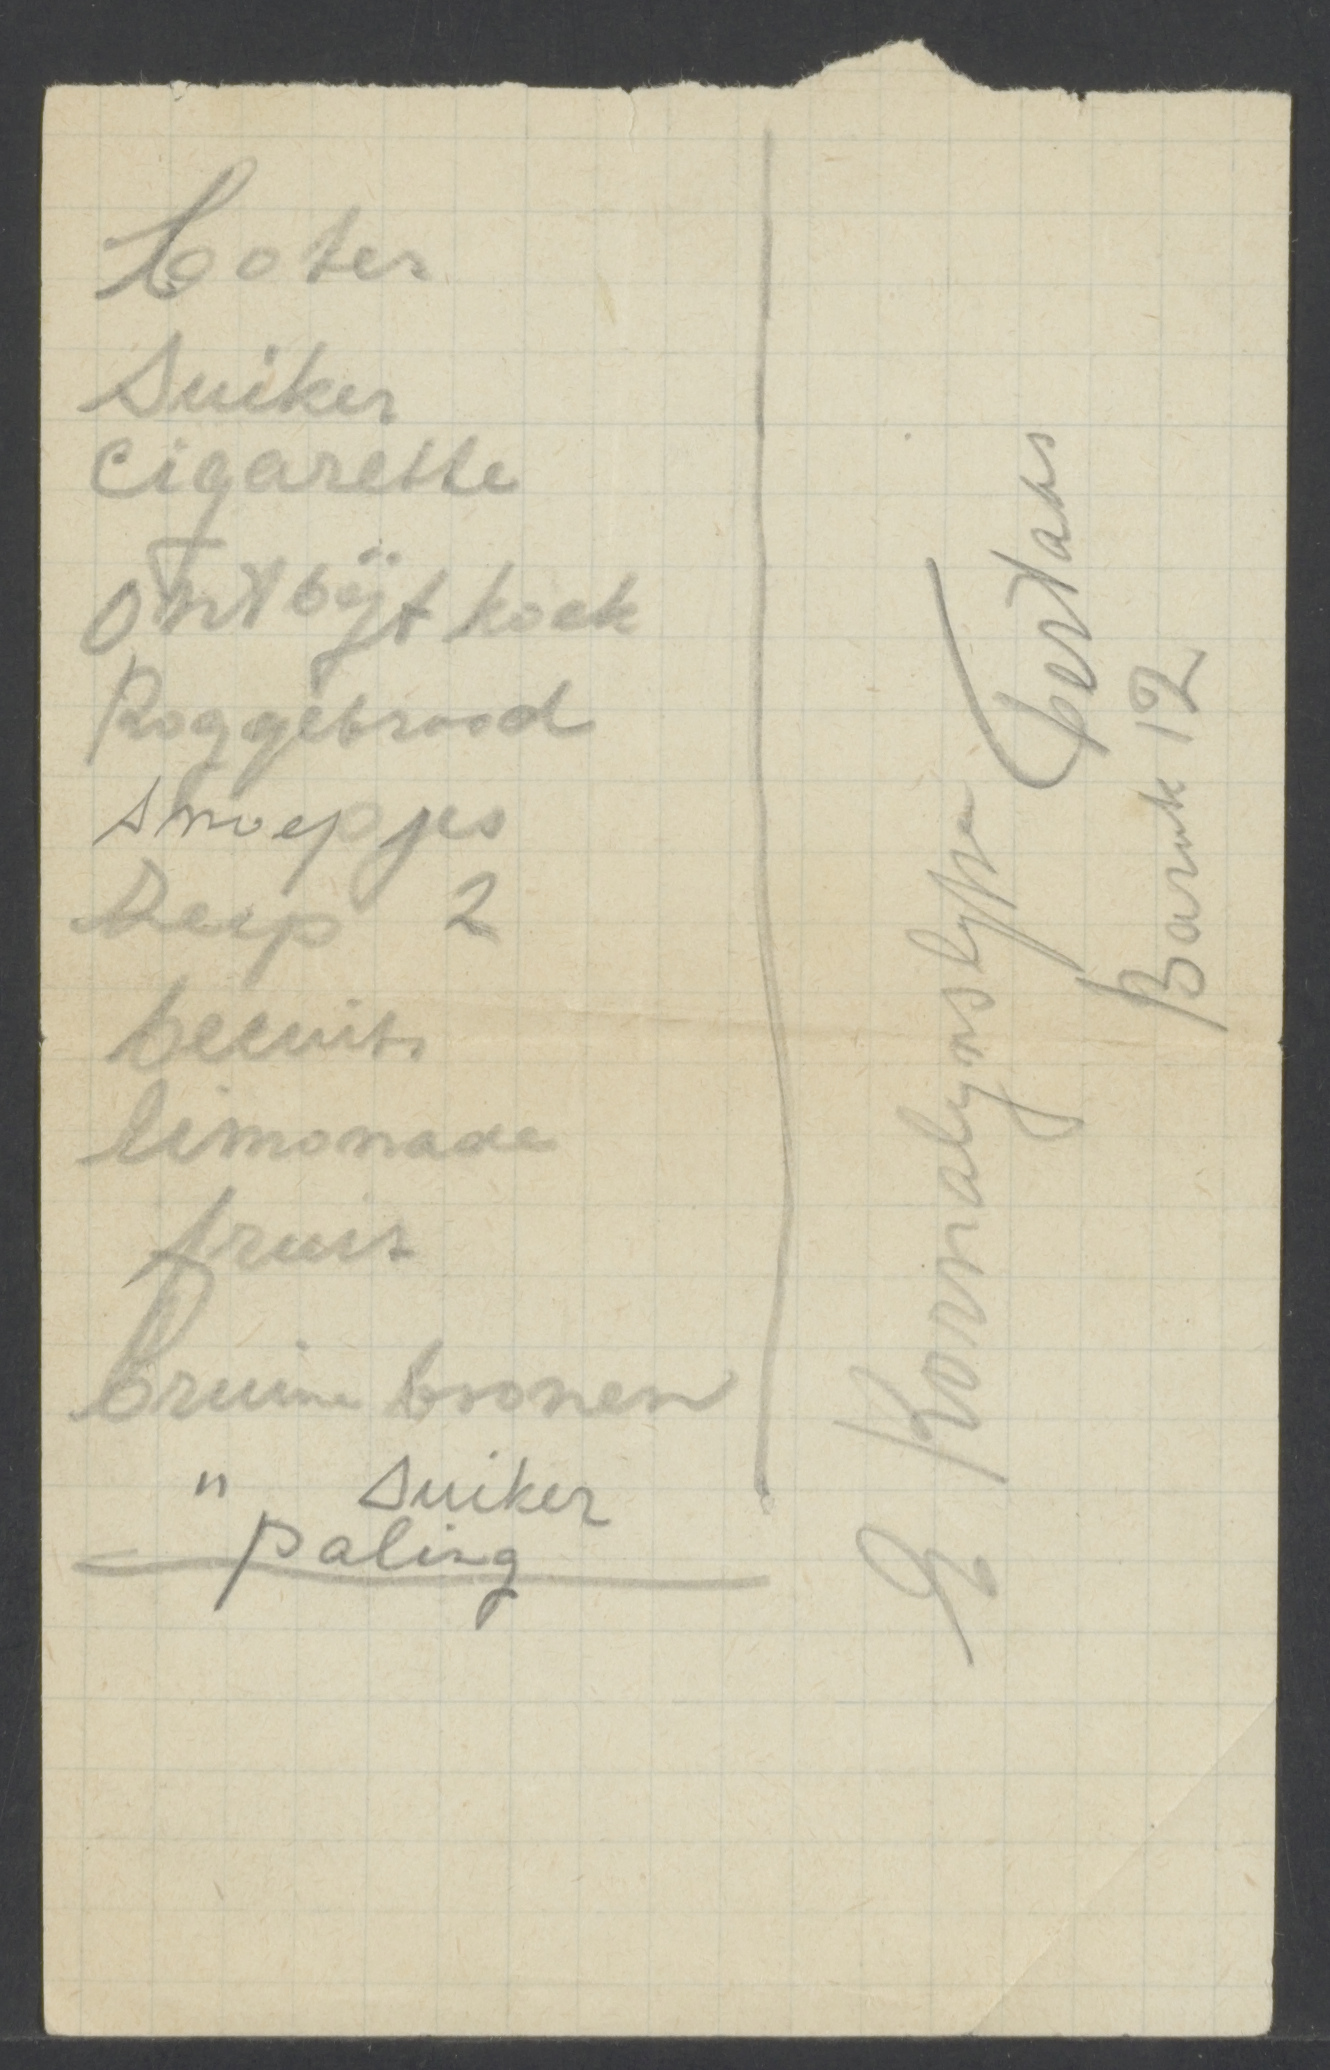 boter
Suiker
Cigarette
Ontbijt koek
Roggebrood
snoepjes
Reep 2
becuits
limonade
fruit
bruine boonen
" suiker
paling
Barak 12